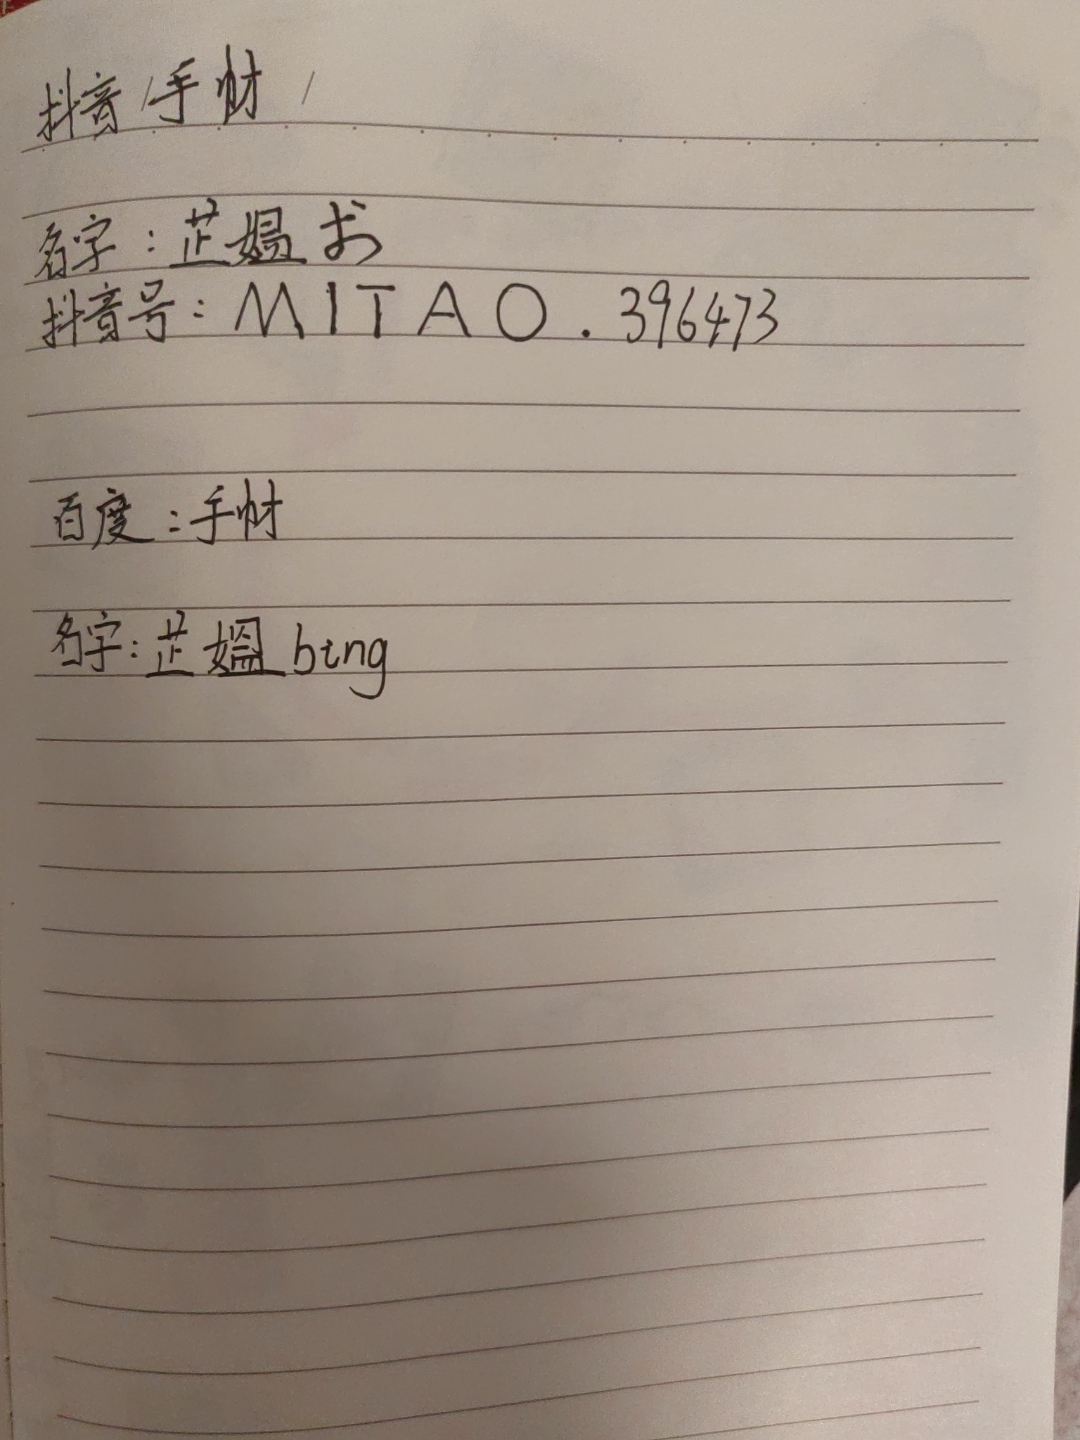 抖音/手材/
名字：芷媪书
抖音号：MITAO.396473
百度：手材
名字：芷媪bing